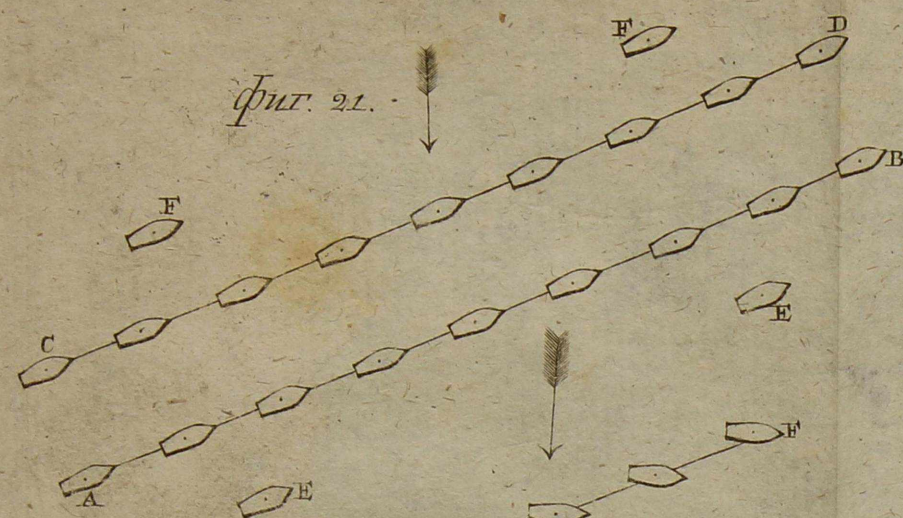 F
D
Фиг. 21.
B
F
E
C
F
A
E